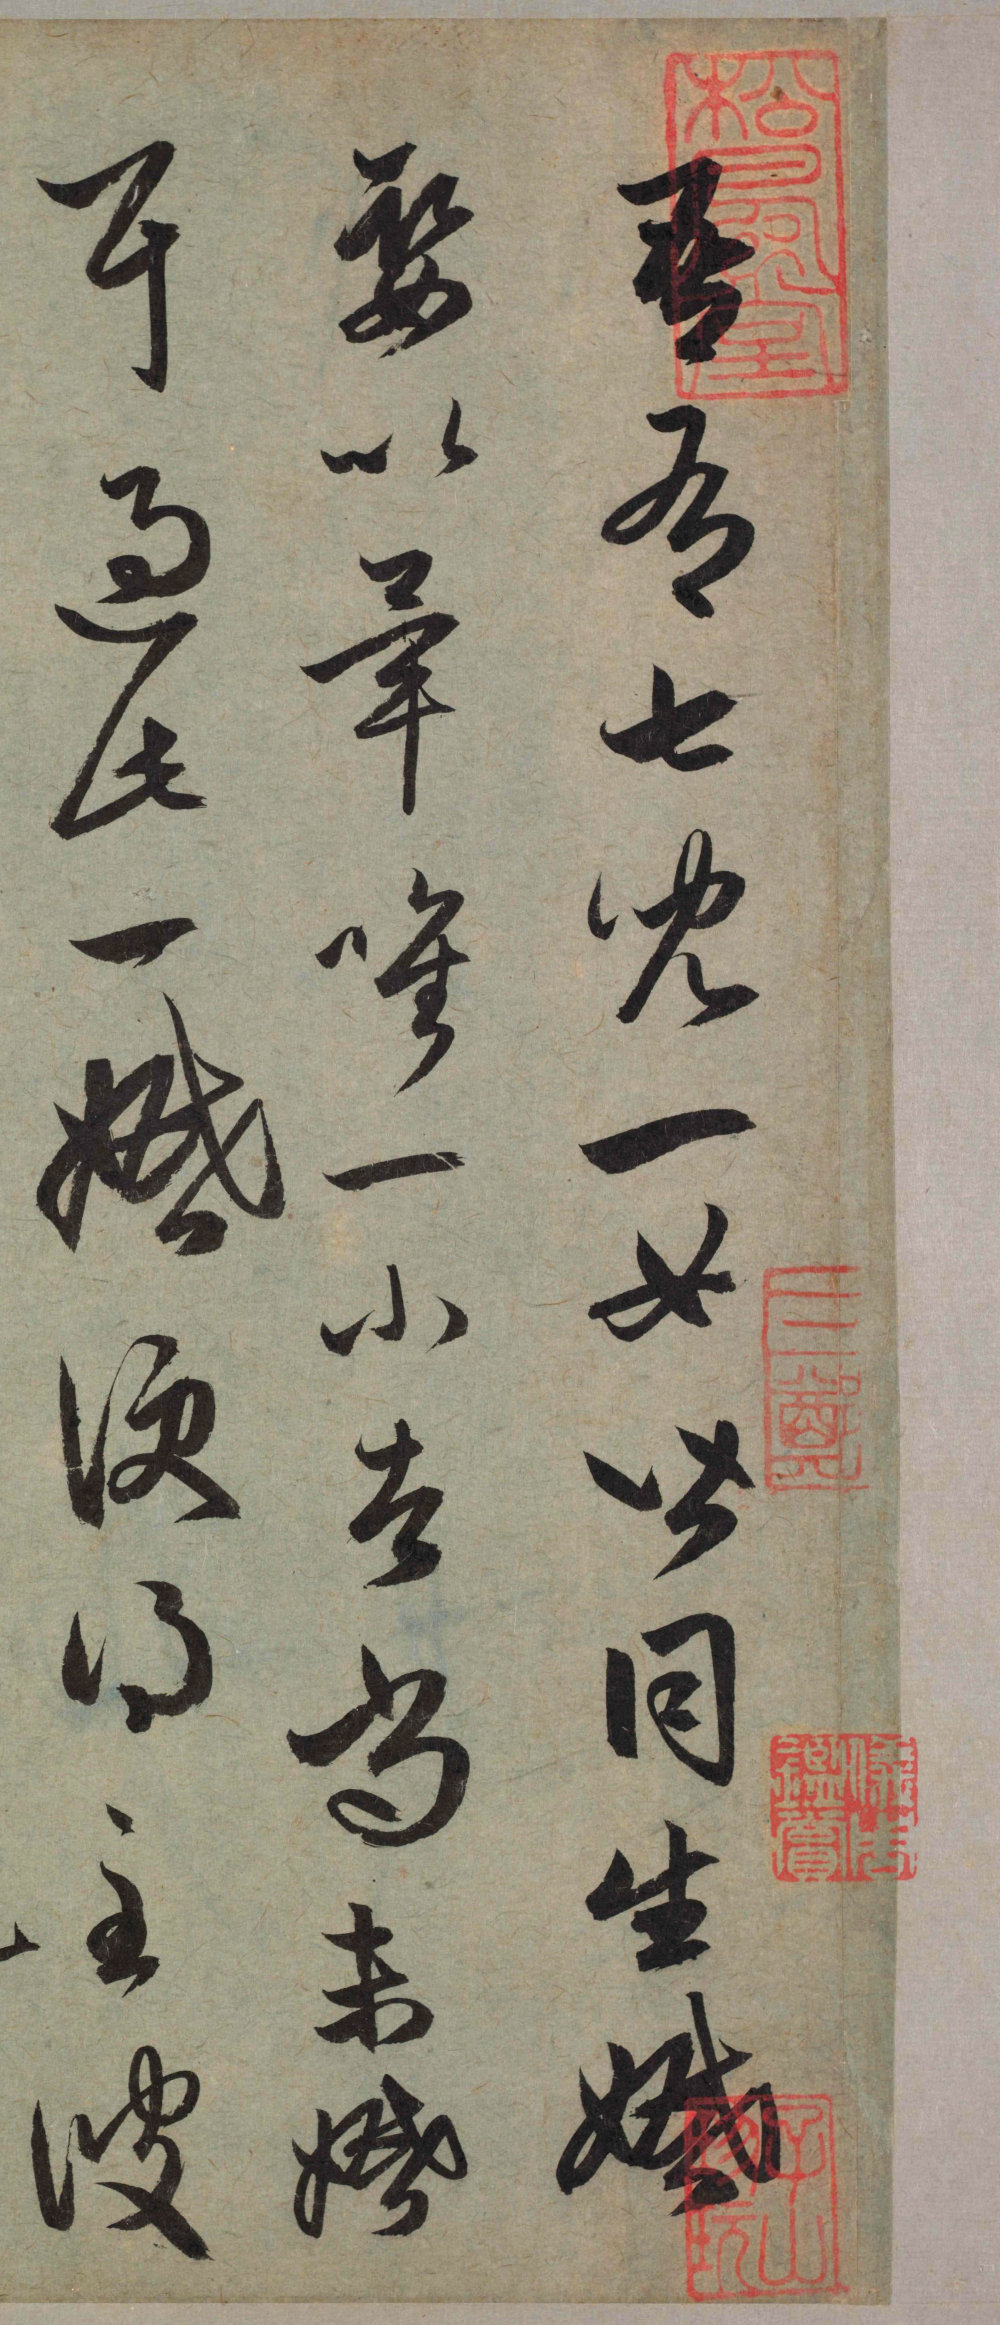 吾有七兒一女皆同生婚
娶以畢唯一小者尚未婚
耳過此一婚便得至彼
儀周鑑賞